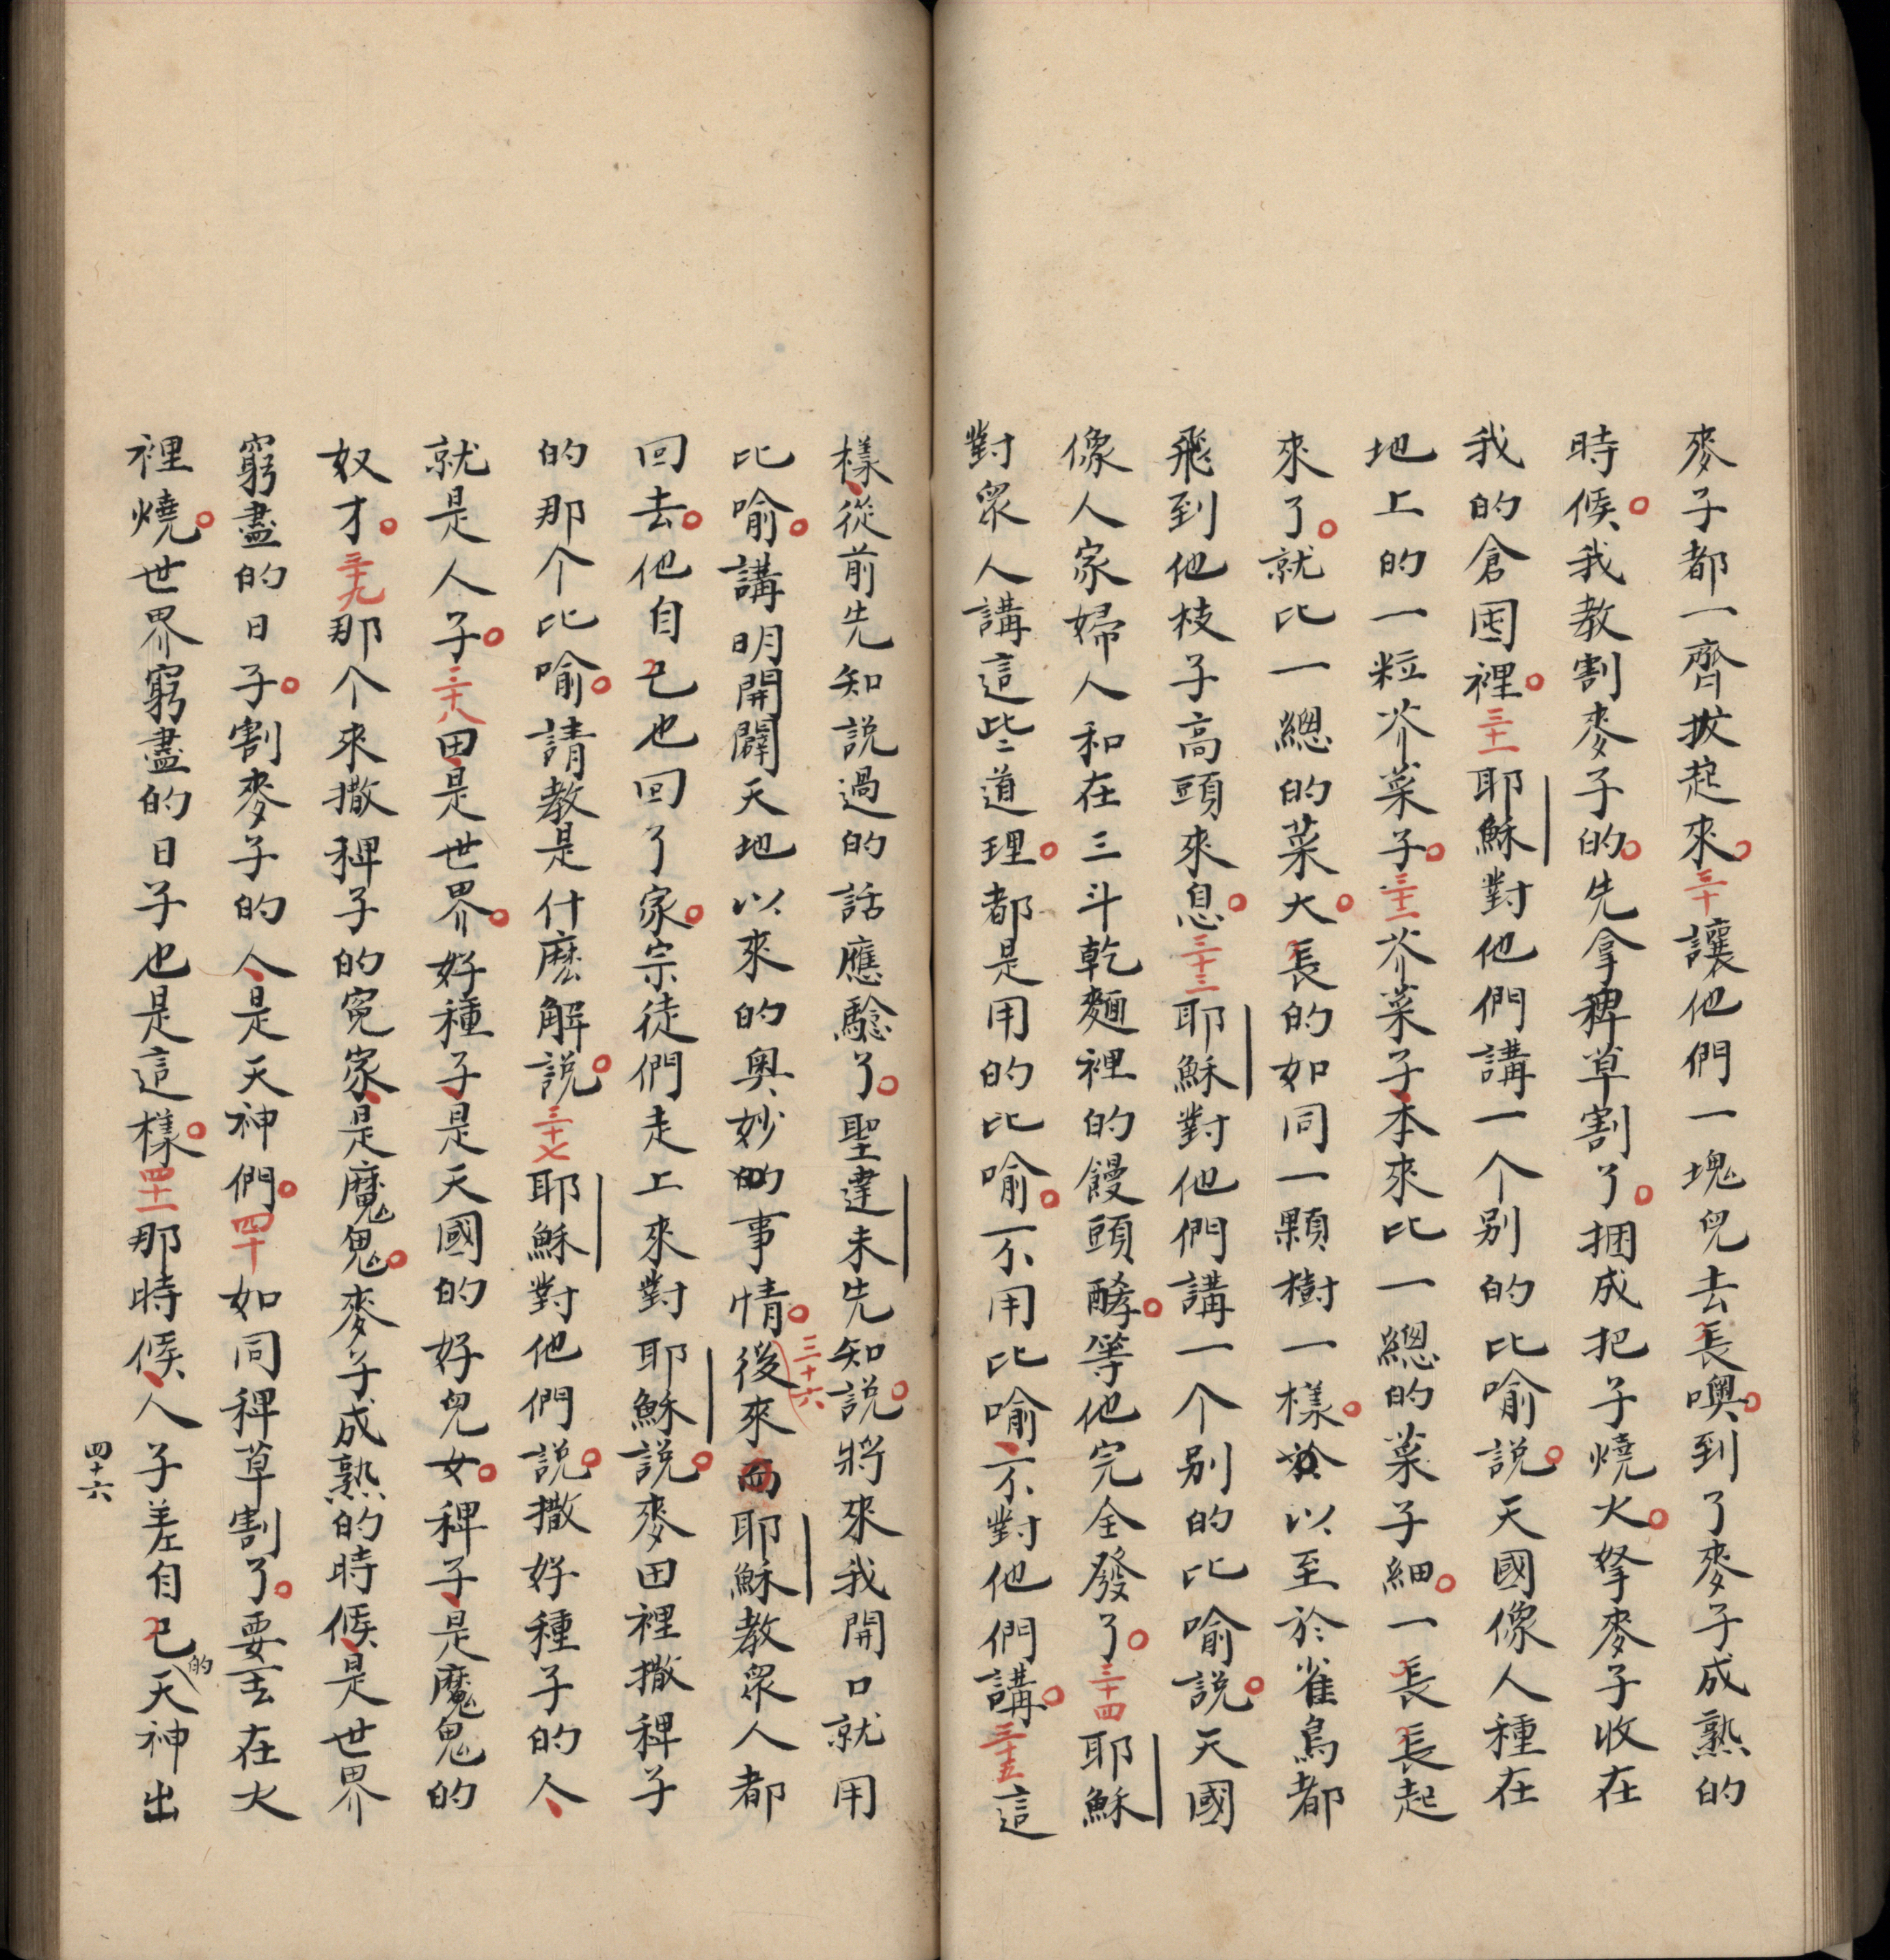 麥子都一齊拔起來。三十讓他們一塊兒去長噢。到了麥子成熟的
時候。我教割麥子的。先拿稗草割了。捆成把子燒火。拏麥子收在
我的倉囷裡。三十一耶穌對他們講一个别的比喻說。天國像人種在
地上的一粒芥菜子。三十二芥菜子、本來比一總的菜子細。一長長起
來了。就比一總的菜大。長的如同一顆樹一樣。以至於雀鳥都
飛到他枝子高頭來息。三十三耶穌對他們講一个别的比喻說。天國
像人家婦人和在三斗乾麵裡的饅頭酵。等他完全發了。三十四耶穌
對衆人講這些道理。都是用的比喻。不用比喻、不對他們講。三十五這
樣、從前先知説過的話應驗了。聖達未先知説。將來我開口就用
比喻。講明開闢天地以來的奥妙的事情。三十六後來耶穌教衆人都
回去。他自己也回了家。宗徒們走上來對耶穌説。麥田裡撒稗子
的那个比喻。請教是什麽解説。三十七耶穌對他們説。撒好種子的人、
就是人子。三十八田、是世界。好種子、是天國的好兒女。稗子、是魔鬼的
奴才。三十九那个來撒稗子的寃家、是魔鬼。麥子成熟的時候、是世界
窮盡的日子。割麥子的人、是天神們。四十如同稗草割了。要丟在火
裡燒。世界窮盡的日子也是這樣。四十一那時候、人子差自己的天神出
四十六